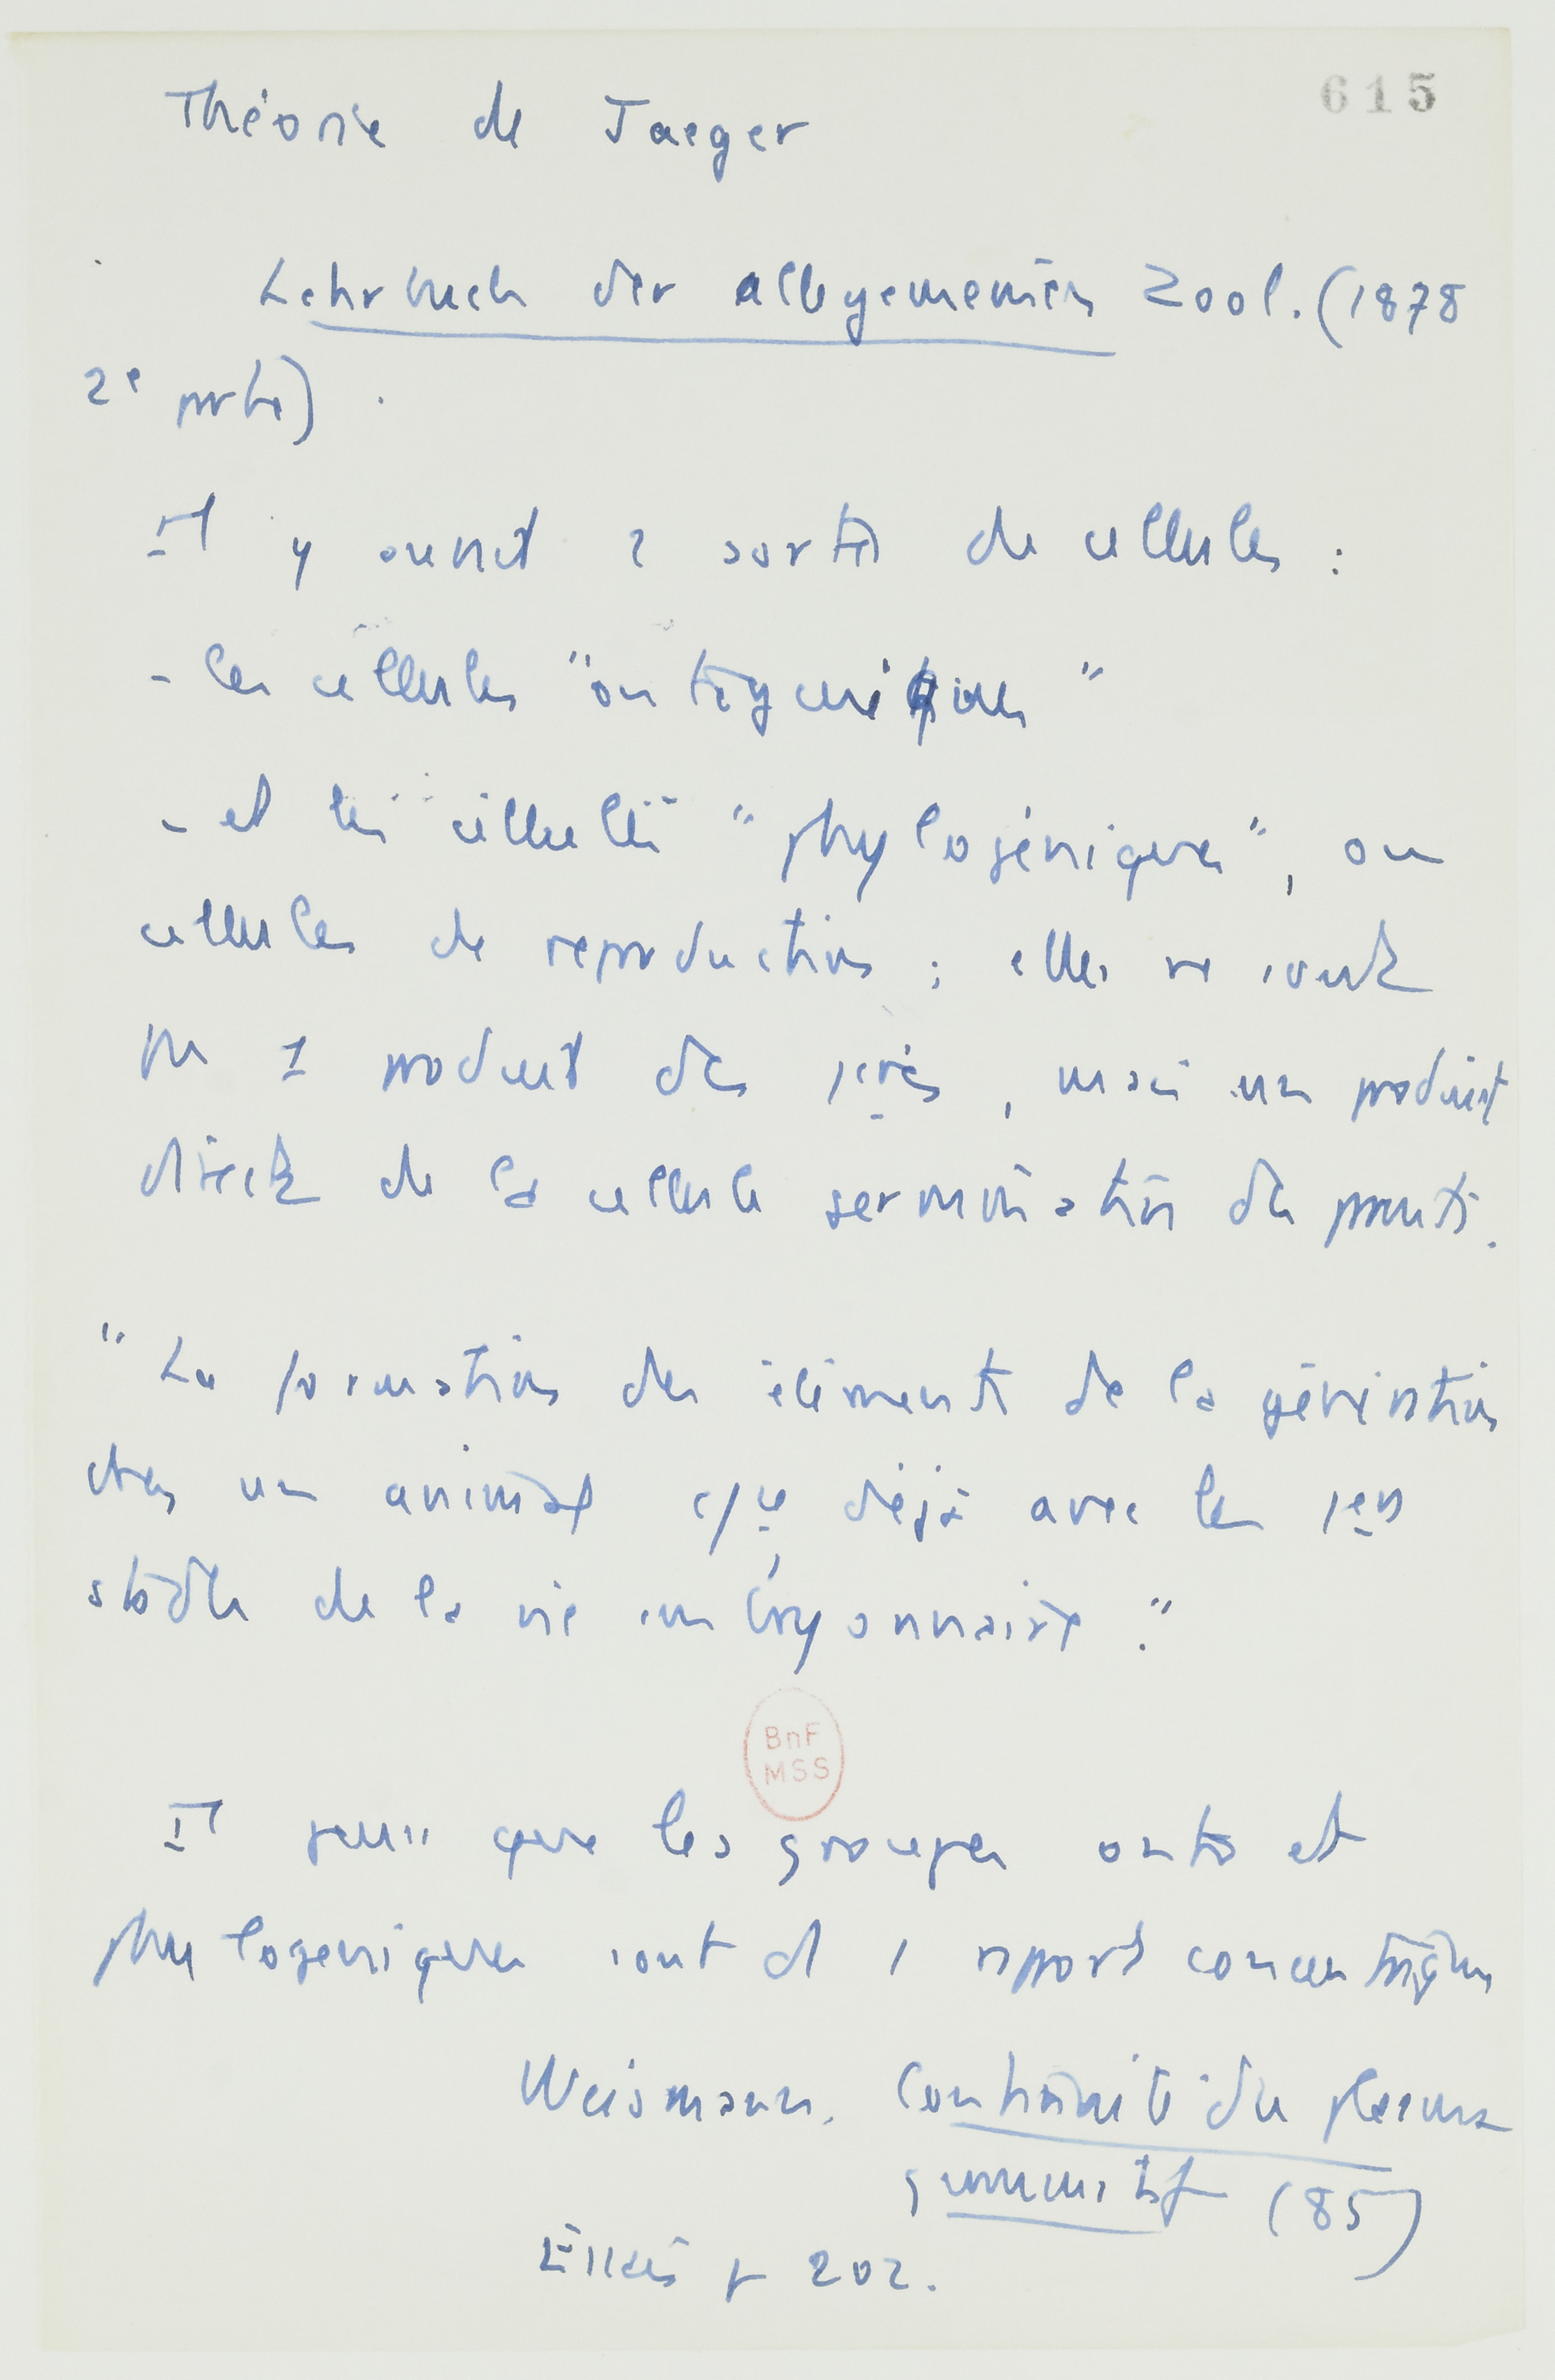 615
Théorie de Jaeger
Lehrbuch der allegemeinien Zool. (1878
2e partie).
Il y aurait 2 sortes de cellules :
- les cellules "ontogéniques"
- et les cellules "phylogéniques", ou
cellules de reproduction ; elles ne sont
pas 1 produit des 1ères, mais un produit
direct de la cellule germination des parents.
"La formation des éléments de la génération
chez un animal c/ce déjà avec les 1ers
stades de la vie embryonnaire."
BnF
MSS
Il que les groupes onto et
phylogeniques sont d 1 rapport concentriques
Weismann. Continuité du plasma
germinatif (85)
Essais p 202.